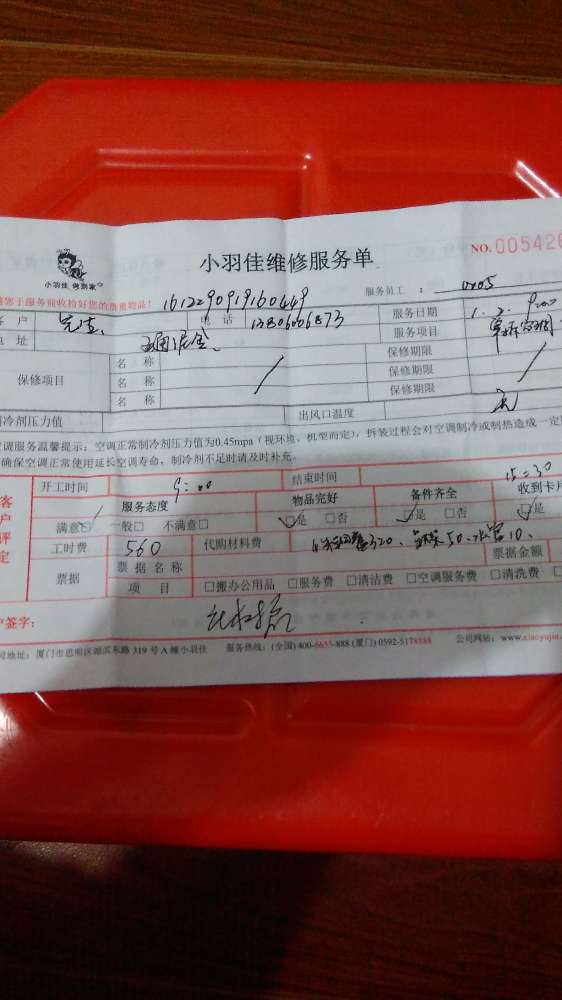 小羽佳 做到家
小羽佳维修服务单
NO. 005426
您于服务前收拾好您的贵重物品! 1612290919160449 服务员工: 0205
客 户 电 话 服务日期 1. 2. 9:00
地 址 服务项目
保修项目 名 称 保修期限
名 称 保修期限
名 称 保修期限
制冷剂压力值 出风口温度 无
空调服务温馨提示: 空调正常制冷剂压力值为0.45mpa (视环境、机型而定), 拆装过程会对空调制冷或制热造成一定
确保空调正常使用延长空调寿命, 制冷剂不足时请及时补充。
开工时间 9:00 结束时间 15:30
客户评定
服务态度 物品完好 备件齐全 收到卡片
满意□ 一般□ 不满意□ □是 □否 □是 □否 □是
工时费 560 代购材料费 320、 50、水管10、
票据 票据名称 票据金额
项 目 □搬办公用品 □服务费 □清洁费 □空调服务费 □清洗费
户签字:
司地址: 厦门市思明区湖滨东路 319 号 A 幢小羽佳 服务热线: (全国) 400-6655-888 (厦门) 0592-5178888 公司网站: www.xiaoyujia